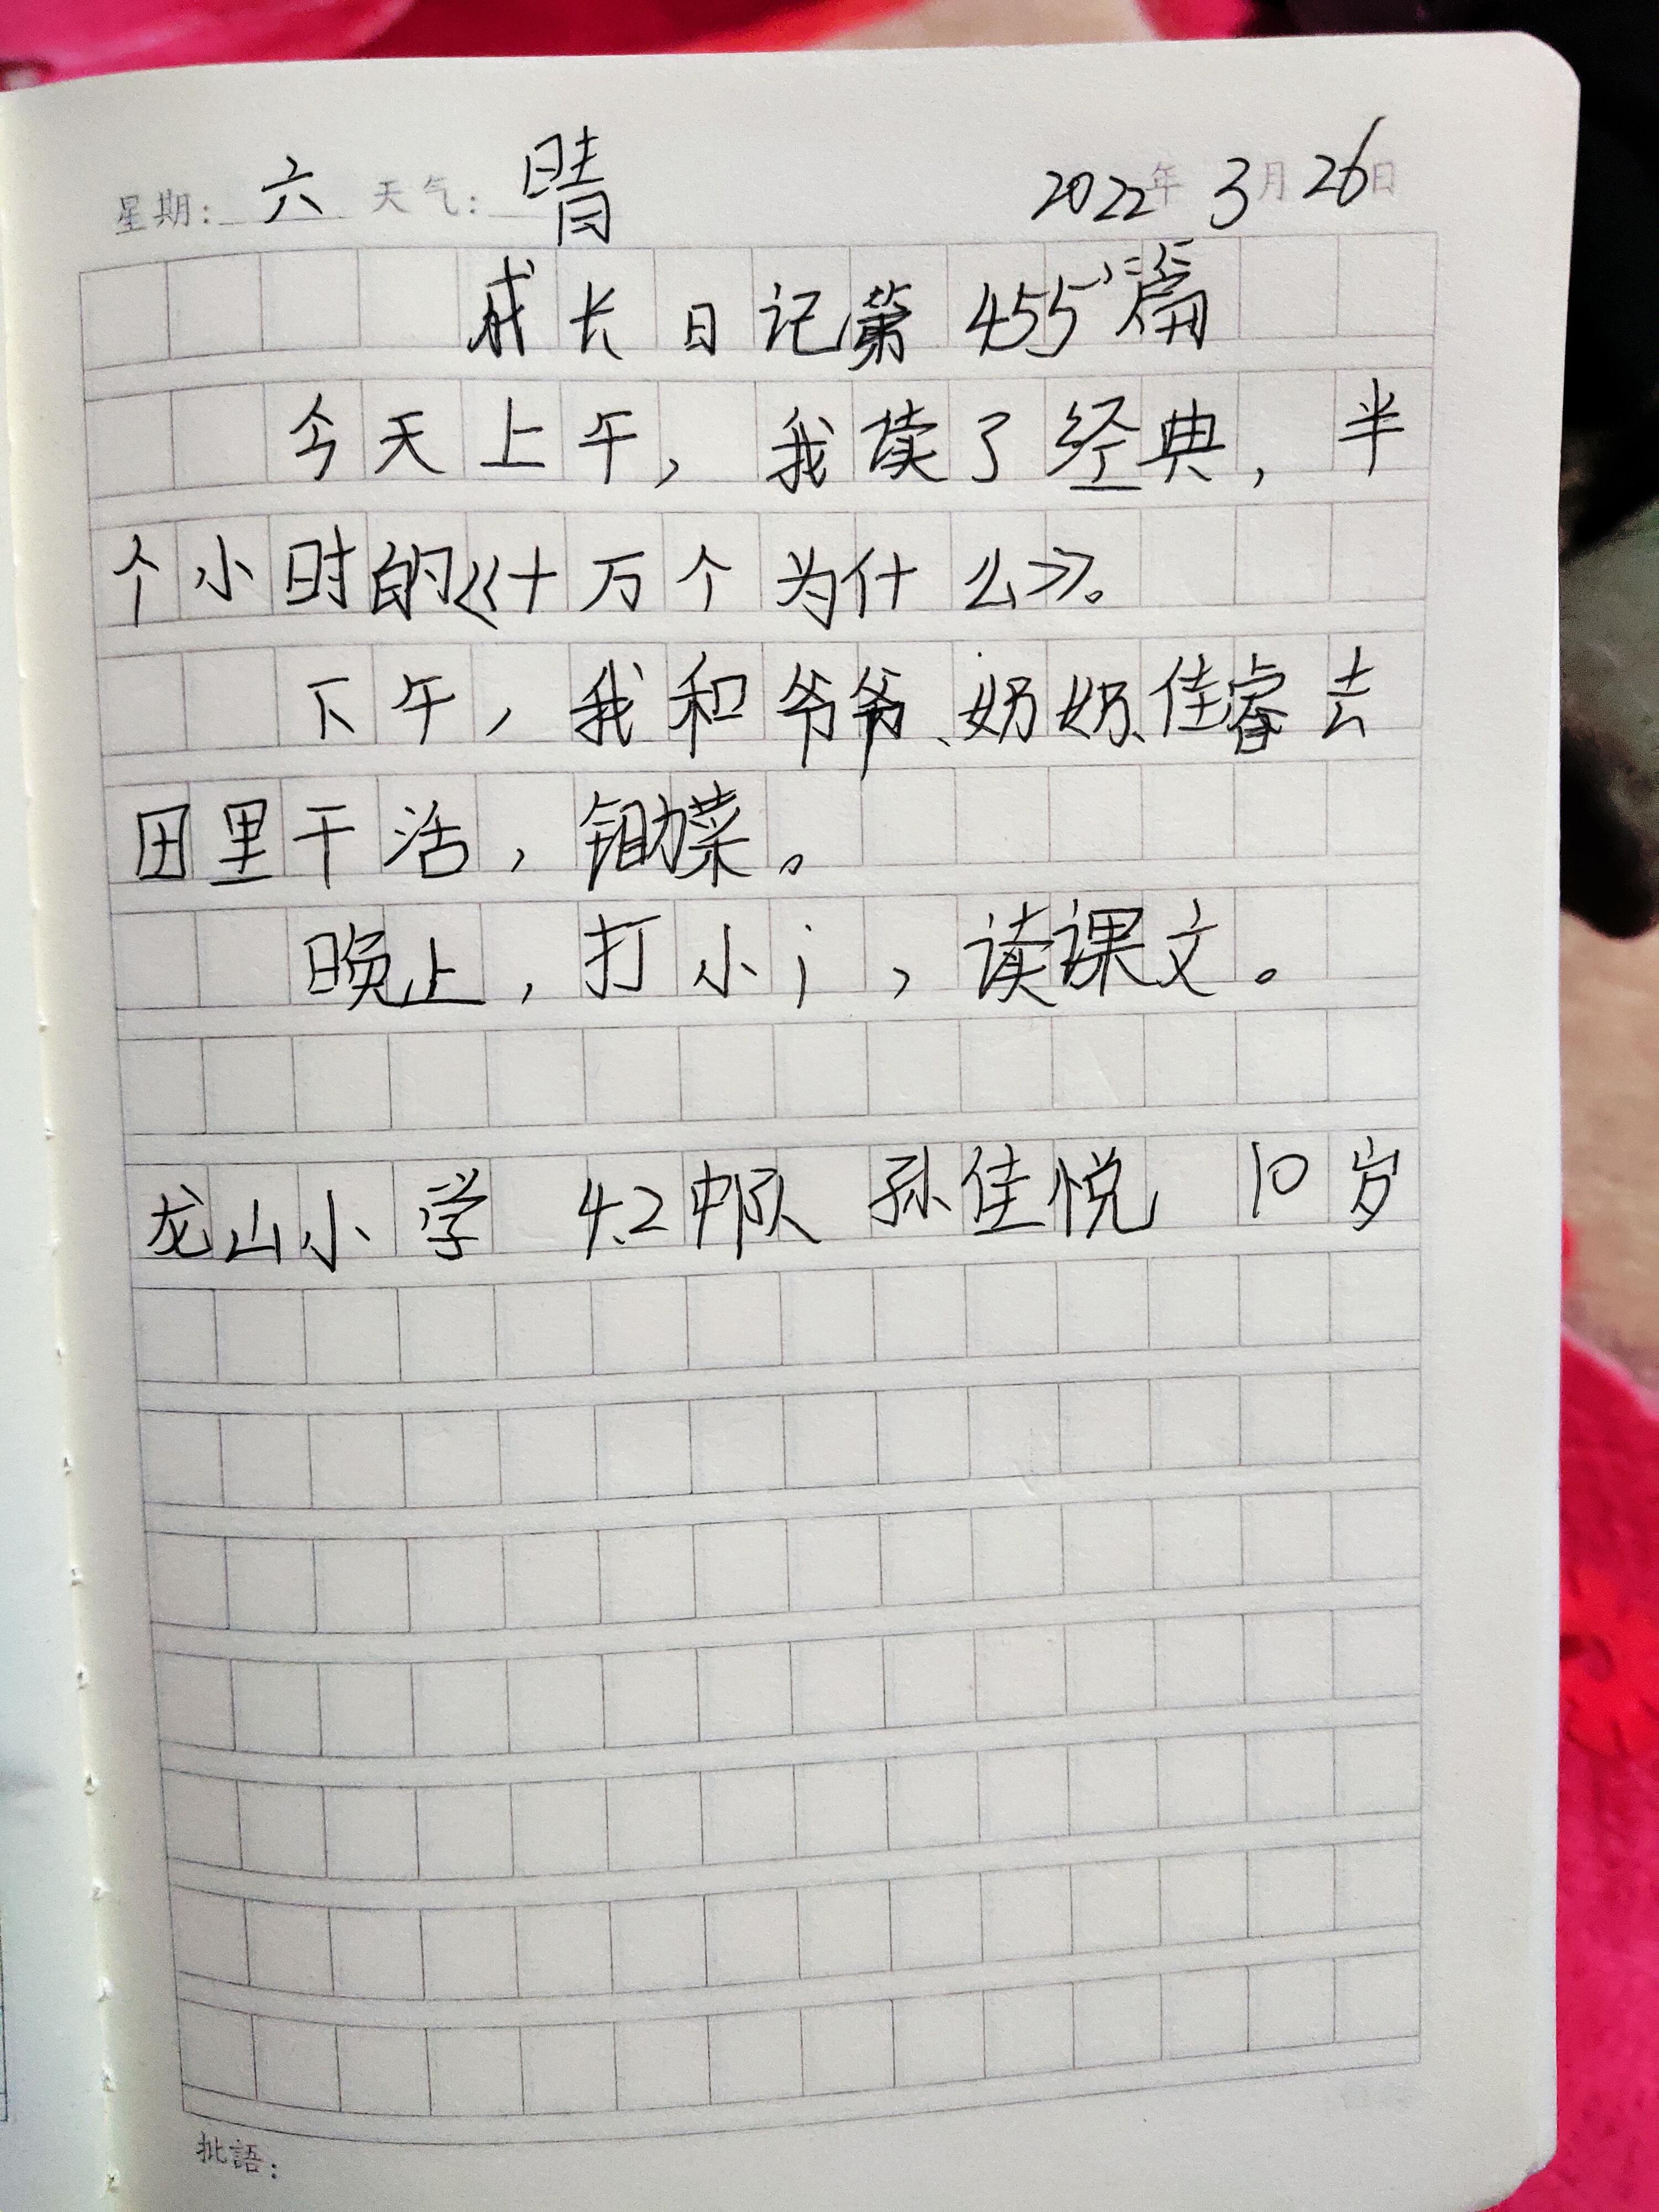 星期: 六 天气: 晴 2022年 3月 26日
成长日记第455篇
今天上午，我读了经典，半
个小时的《十万个为什么》。
下午，我和爷爷、奶奶、佳睿去
田里干活，锄菜。
晚上，打小i，读课文。
龙山小学 4.2中队 孙佳悦 10岁
批語: